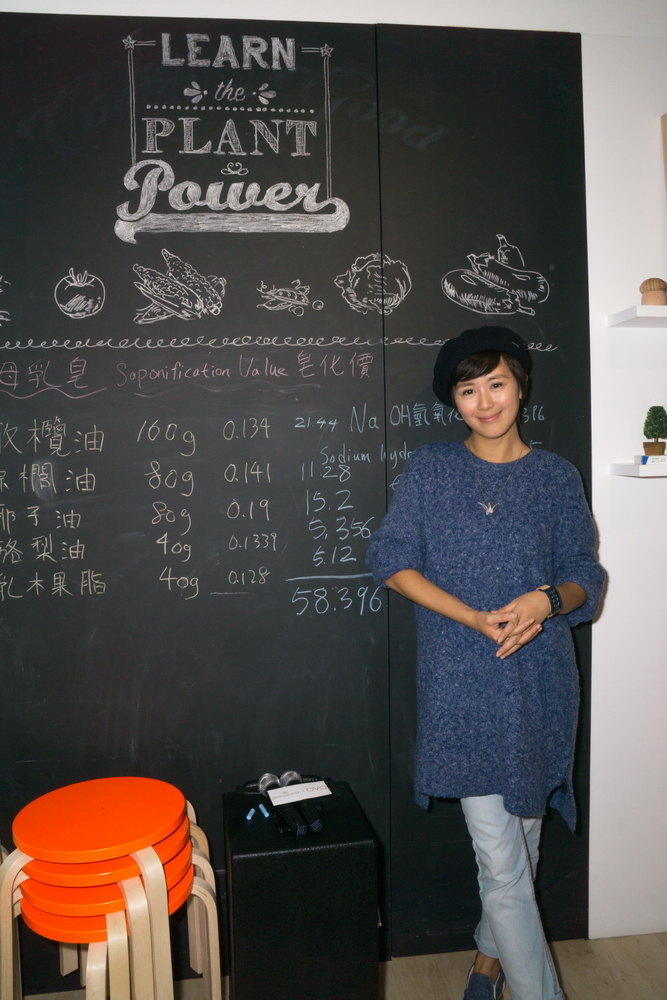 LEARN
the
PLANT
Power
母乳皂 Saponification Value 皂化價
欖油 160g 0.134 21.44 Na OH 氫氧化
Sodium hydr
櫚油 80g 0.141 11.28
椰子油 80g 0.19 15.2
酪梨油 40g 0.1339 5.356
乳木果脂 40g 0.128 5.12
58.396